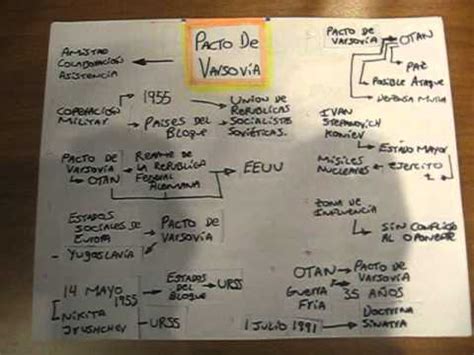 PACTO DE
VARSOVIA
AMISTAD
COLABORACIÓN
ASISTENCIA
COPERACIÓN
MILITAR
1955
PAISES DEL
BLOQUE
UNION DE
REPUBLICAS
SOCIALISTAS
SOVIÉTICAS.
PACTO DE
VARSOVIA
OTAN
REARME DE
LA REPUBLICA
FEDERAL
ALEMANA
EEUU
ESTADOS
SOCIALES DE
EUROPA
- YUGOSLAVIA
PACTO DE
VARSOVIA
14 MAYO
1955
NIKITA
ESTADOS
DEL
BLOQUE
URSS
URSS
PACTO DE
VARSOVIA
OTAN
PAZ
POSIBLE ATAQUE
DEFENSA MUTUA
IVAN
STEPANOVICH
KONIEV
ESTADO MAYOR
MISILES
NUCLEARES
EJERCITO
ZONA DE
INFLUENCIA
SIN CONFLICTO
AL OPONENTE
OTAN
PACTO DE
VARSOVIA
GUERRA
FRIA
35 AÑOS
1 JULIO 1991
DOCTRINA
SINATRA